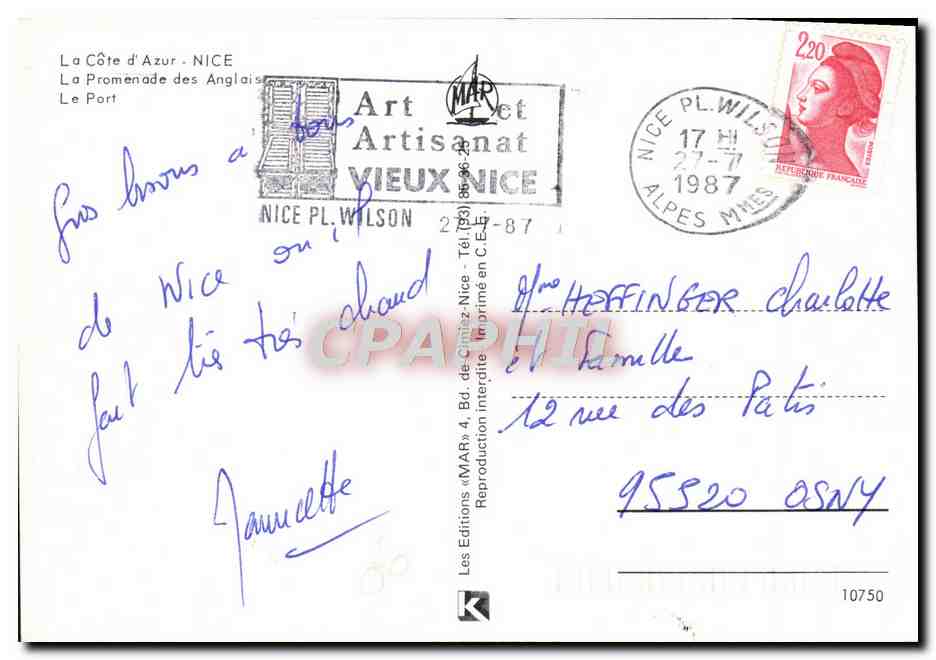 La Côte d'Azur - NICE
La Promenade des Anglais
Le Port
Art et
Artisanat
VIEUX NICE
NICE PL. WILSON 27-7-87
MAR
NICE PL. WILSON
17 H
27-7
1987
ALPES MMES
2,20
REPUBLIQUE FRANÇAISE
Gros bisous à tous
de Nice où il
fait très très chaud
Les Editions «MAR» 4, Bd. de Cimiez-Nice - Tél. (93)
Reproduction interdite - Imprimé en C.E.E.
Mme HEFFINGER Charlotte
et Famille
12 rue des Patis
95520 OSNY
CPAPHIL
K
10750